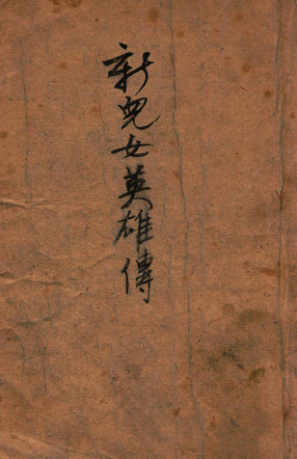 新兒女英雄傳